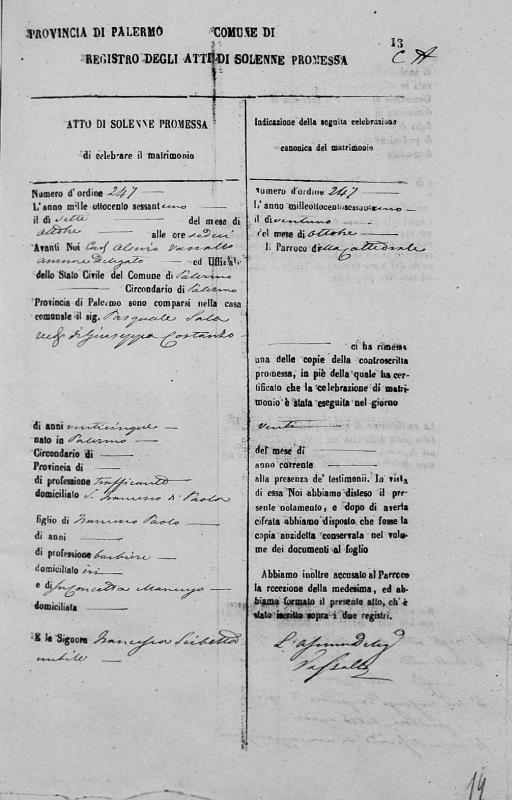 PROVINCIA DI PALERMO COMUNE DI
13
REGISTRO DEGLI ATTI DI SOLENNE PROMESSA
ATTO DI SOLENNE PROMESSA
di celebrare il matrimonio
Numero d'ordine 247
L'anno mille ottocento sessantuno
il dì sette del mese di
ottobre alle ore sedici
Avanti Noi Cav Vassallo
Delegato ed Uffiziale
dello Stato Civile del Comune di Palermo
Circondario di Palermo
Provincia di Palermo sono comparsi nella casa
comunale il sig. Pasquale Sala
ved di Giuseppa Costanzo
di anni venticinque
nato in Palermo
Circondario di
Provincia di
di professione trafficante
domiciliato S. Francesco di Paola
figlio di Francesco Paolo
di anni
di professione barbiere
domiciliato ivi
e di fu Concetta
domiciliata
E la Signora Francesca
nubile
Indicazione della seguita celebrazione
canonica del matrimonio
Numero d'ordine 247
L'anno milleottocentosessantuno
il dì ventuno
del mese di ottobre
Il Parroco della Cattedrale
ci ha rimessa
una delle copie della controscritta
promessa, in piè della quale ha cer-
tificato che la celebrazione di matri-
monio è stata eseguita nel giorno
venti
del mese di
anno corrente
alla presenza de' testimonii. In vista
di essa Noi abbiamo disteso il pre-
sente notamento, e dopo di averla
cifrata abbiamo disposto che fosse la
copia anzidetta conservata nel volu-
me dei documenti al foglio
Abbiamo inoltre accusato al Parroco
la recezione della medesima, ed ab-
biamo formato il presente atto, ch'è
stato iscritto sopra i due registri.
Vassallo
19